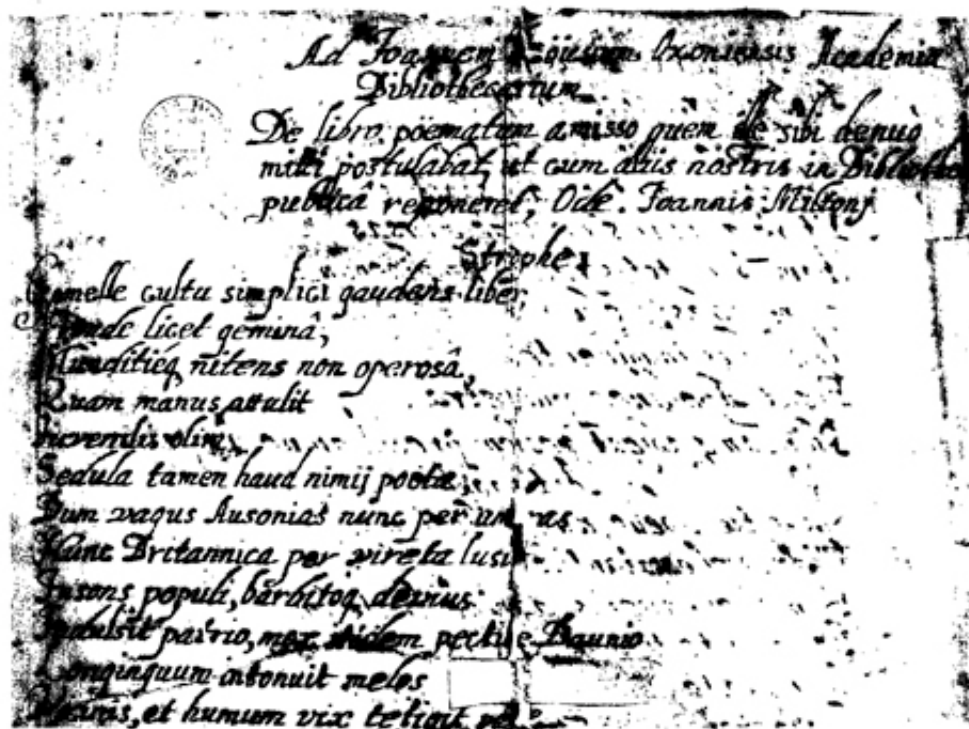 Ad Joannem Roüsium Oxoniensis Academiæ
Bibliothecarium
De libro poematum amisso quem ille sibi denuò
mitti postulabat, ut cum aliis nostris in Bibliotheca
publicâ reponeret, Ode. Joannis Miltonj
Strophe 1
Gemelle cultu simplici gaudens liber,
Fronde licet geminâ,
Munditieq nitens non operosâ,
Quam manus attulit
Iuvenilis olim,
Sedula tamen haud nimij poetæ
Dum vagus Ausonias nunc per umbras
Nunc Britannica per vireta lusit
Insons populi, barbitoq devius
Indulsit patrio, mox itidem pectine Daunio
Longinquum intonuit melos
Vicinis, et humum vix tetigit